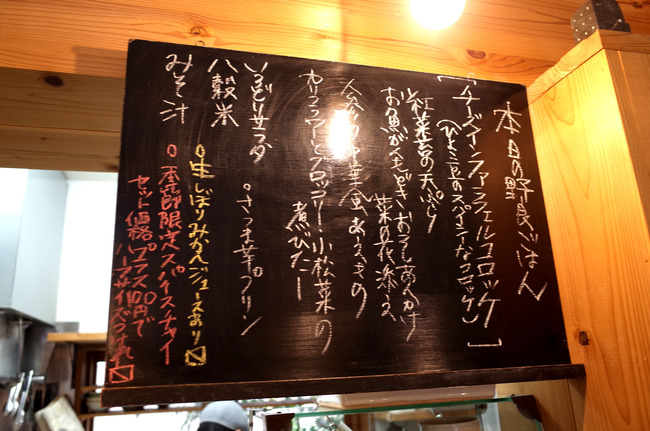 本日の野良ごはん
「チーズインファラフェルコロッケ」
(ひよこ豆のスパイシーなコロッケ)
紅菜苔の天ぷら
お魚がんもどき おろしあんかけ
菜の花添え
中華風あえもの
カリフラワーとブロッコリー・小松菜の
煮びたし
いろどりサラダ
八穀米
みそ汁
さつま芋プリン
生しぼりみかんジュースあり
季節限定スパイスチャイ
セット価格プラス100円で
ハーフサイズつけれ